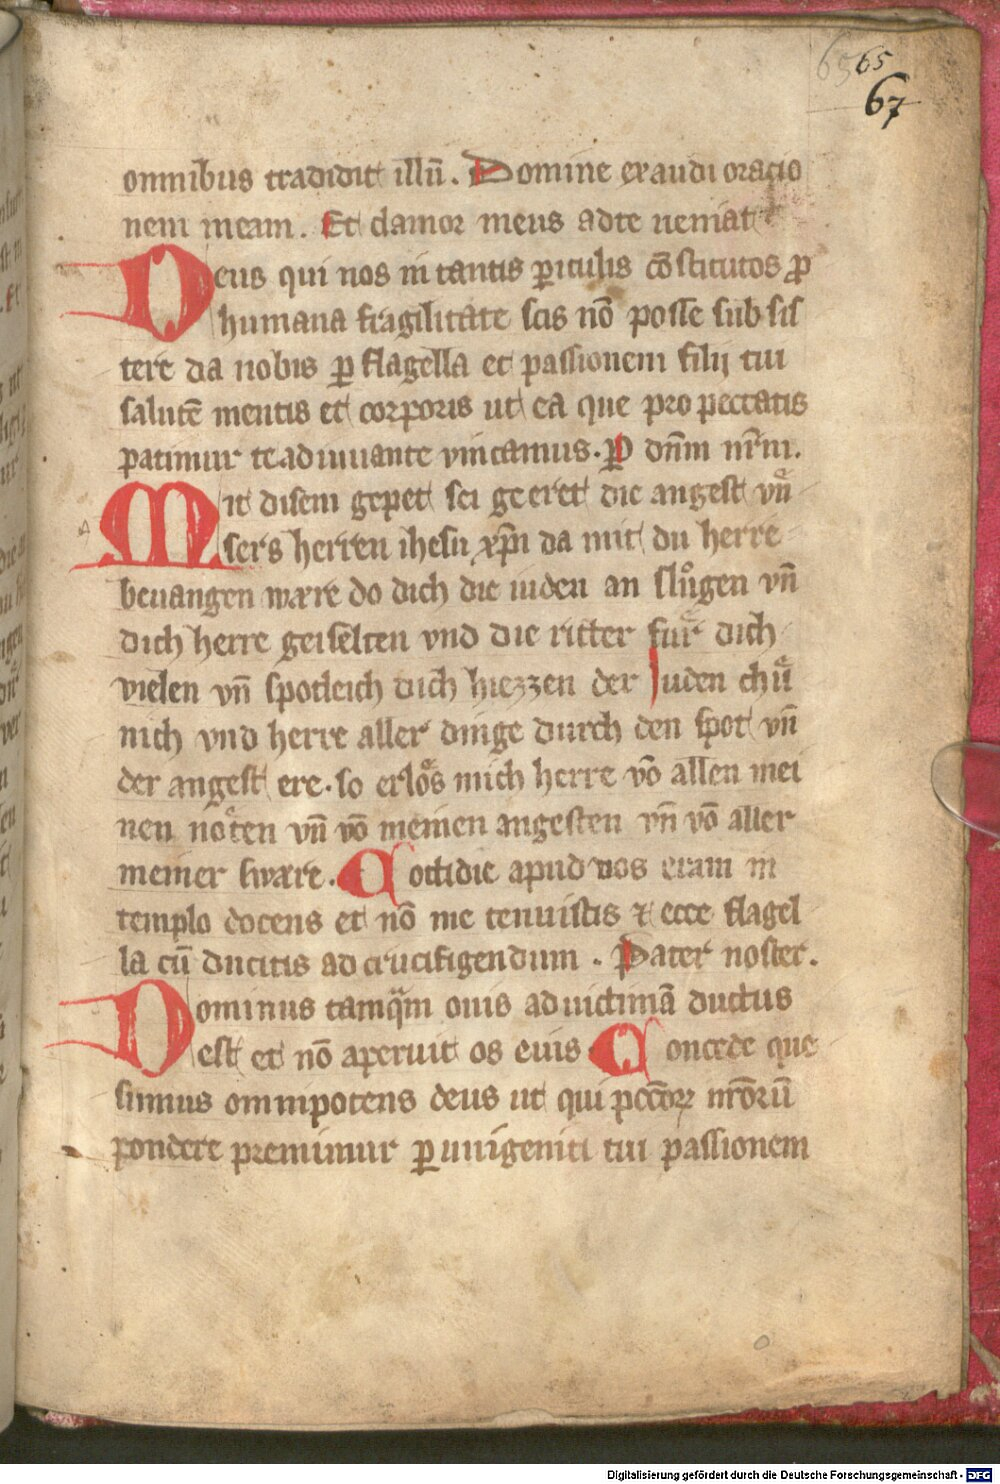 65 65
67
omnibus tradidit illū. Domine exaudi oracio
nem meam. Et clamor meus adte ueniat
Deus qui nos in tantis ꝑiculis cōstitutos ꝓ
humana fragilitate scis nō posse subsis
tere da nobis ꝑ flagella et passionem filij tui
salutē mentis et corporis ut ea que pro peccatis
patimur te adiuuante vincamus. P dn̄m nr̄m.
Mit disem gepet sei geeret die angest vn̄
sers herren ihesu xp̄n da mit du herre
beuangen wære do dich die iuden an slůgen vn̄
dich herre geiselten vnd die ritter für dich
vielen vn̄ spotleich dich hiezzen der Juden chü
nich vnd herre aller dinge durch den spot vn̄
der angest ere. so erlöͤs mich herre vō allen mei
nen nöͤten vn̄ vō meinen angesten vn̄ vō aller
meiner swære. Cottidie apud uos eram in
templo docens et nō me tenuistis ⁊ ecce flagel
la cū ducitis ad crucifigendum. Pater noster.
Dominus tamq̄m ouis ad uictimā ductus
est et nō aperuit os euis Concede que
sumus omnipotens deus ut qui pcc̄orꝝ nr̄orū
pondere premimur ꝑ unigeniti tui passionem
Digitalisierung gefördert durch die Deutsche Forschungsgemeinschaft - DFG